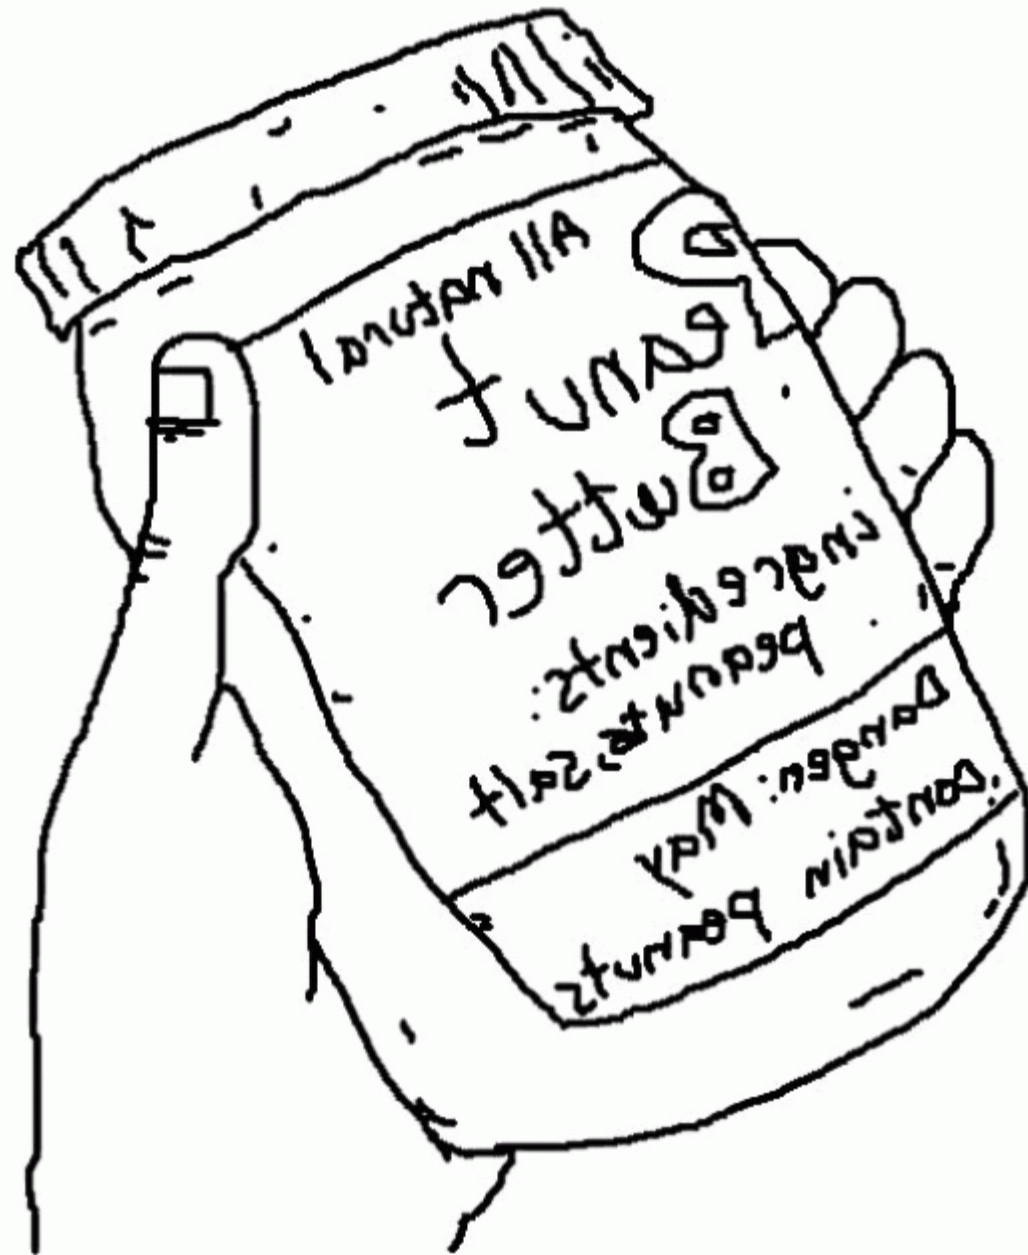 All natural
Peanut
Butter
ingredients:
peanuts, salt
Danger: May
contain peanuts